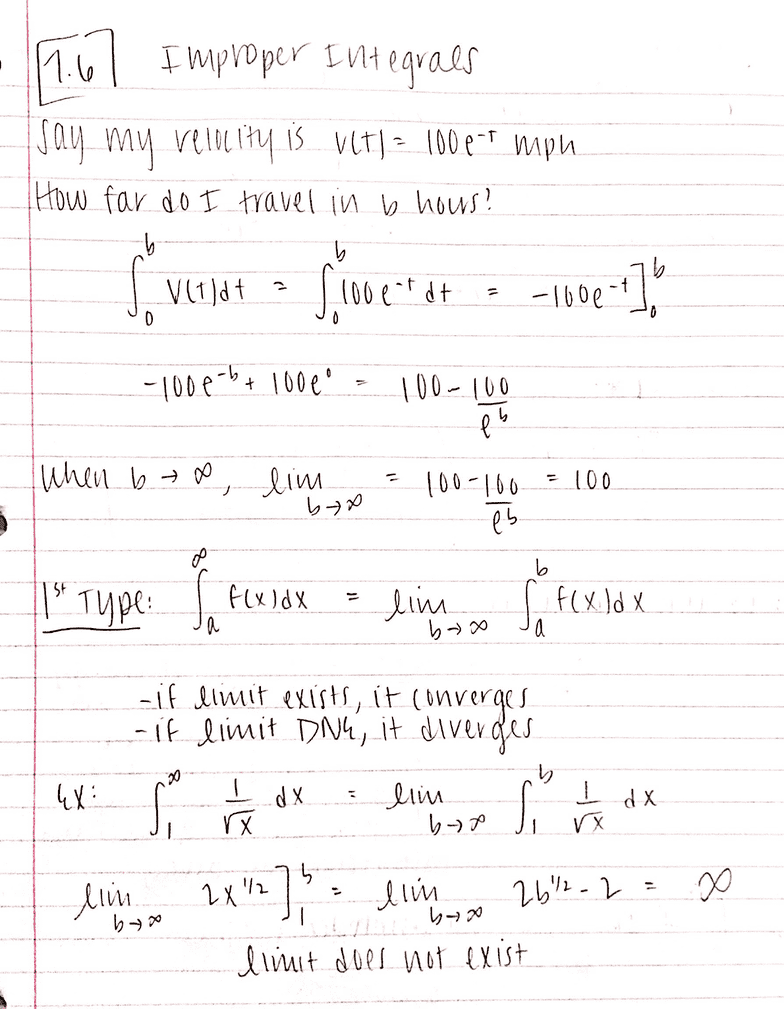 7.6 Improper Integrals
Say my velocity is v(t) = 100e^-t mph
How far do I travel in b hours?
∫_0^b v(t)dt = ∫_0^b 100e^-t dt = -100e^-t]_0^b
-100e^-b + 100e^0 = 100 - 100/e^b
When b → ∞, lim_b→∞ = 100 - 100/e^b = 100
1st Type: ∫_a^∞ f(x)dx = lim_b→∞ ∫_a^b f(x)dx
- if limit exists, it converges
- if limit DNE, it diverges
Ex: ∫_1^∞ 1/√x dx = lim_b→∞ ∫_1^b 1/√x dx
lim_b→∞ 2x^1/2]_1^b = lim_b→∞ 2b^1/2 - 2 = ∞
limit does not exist